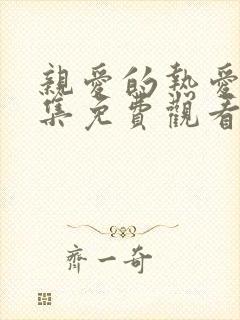 親愛的熱愛
集免費觀看
齊一奇